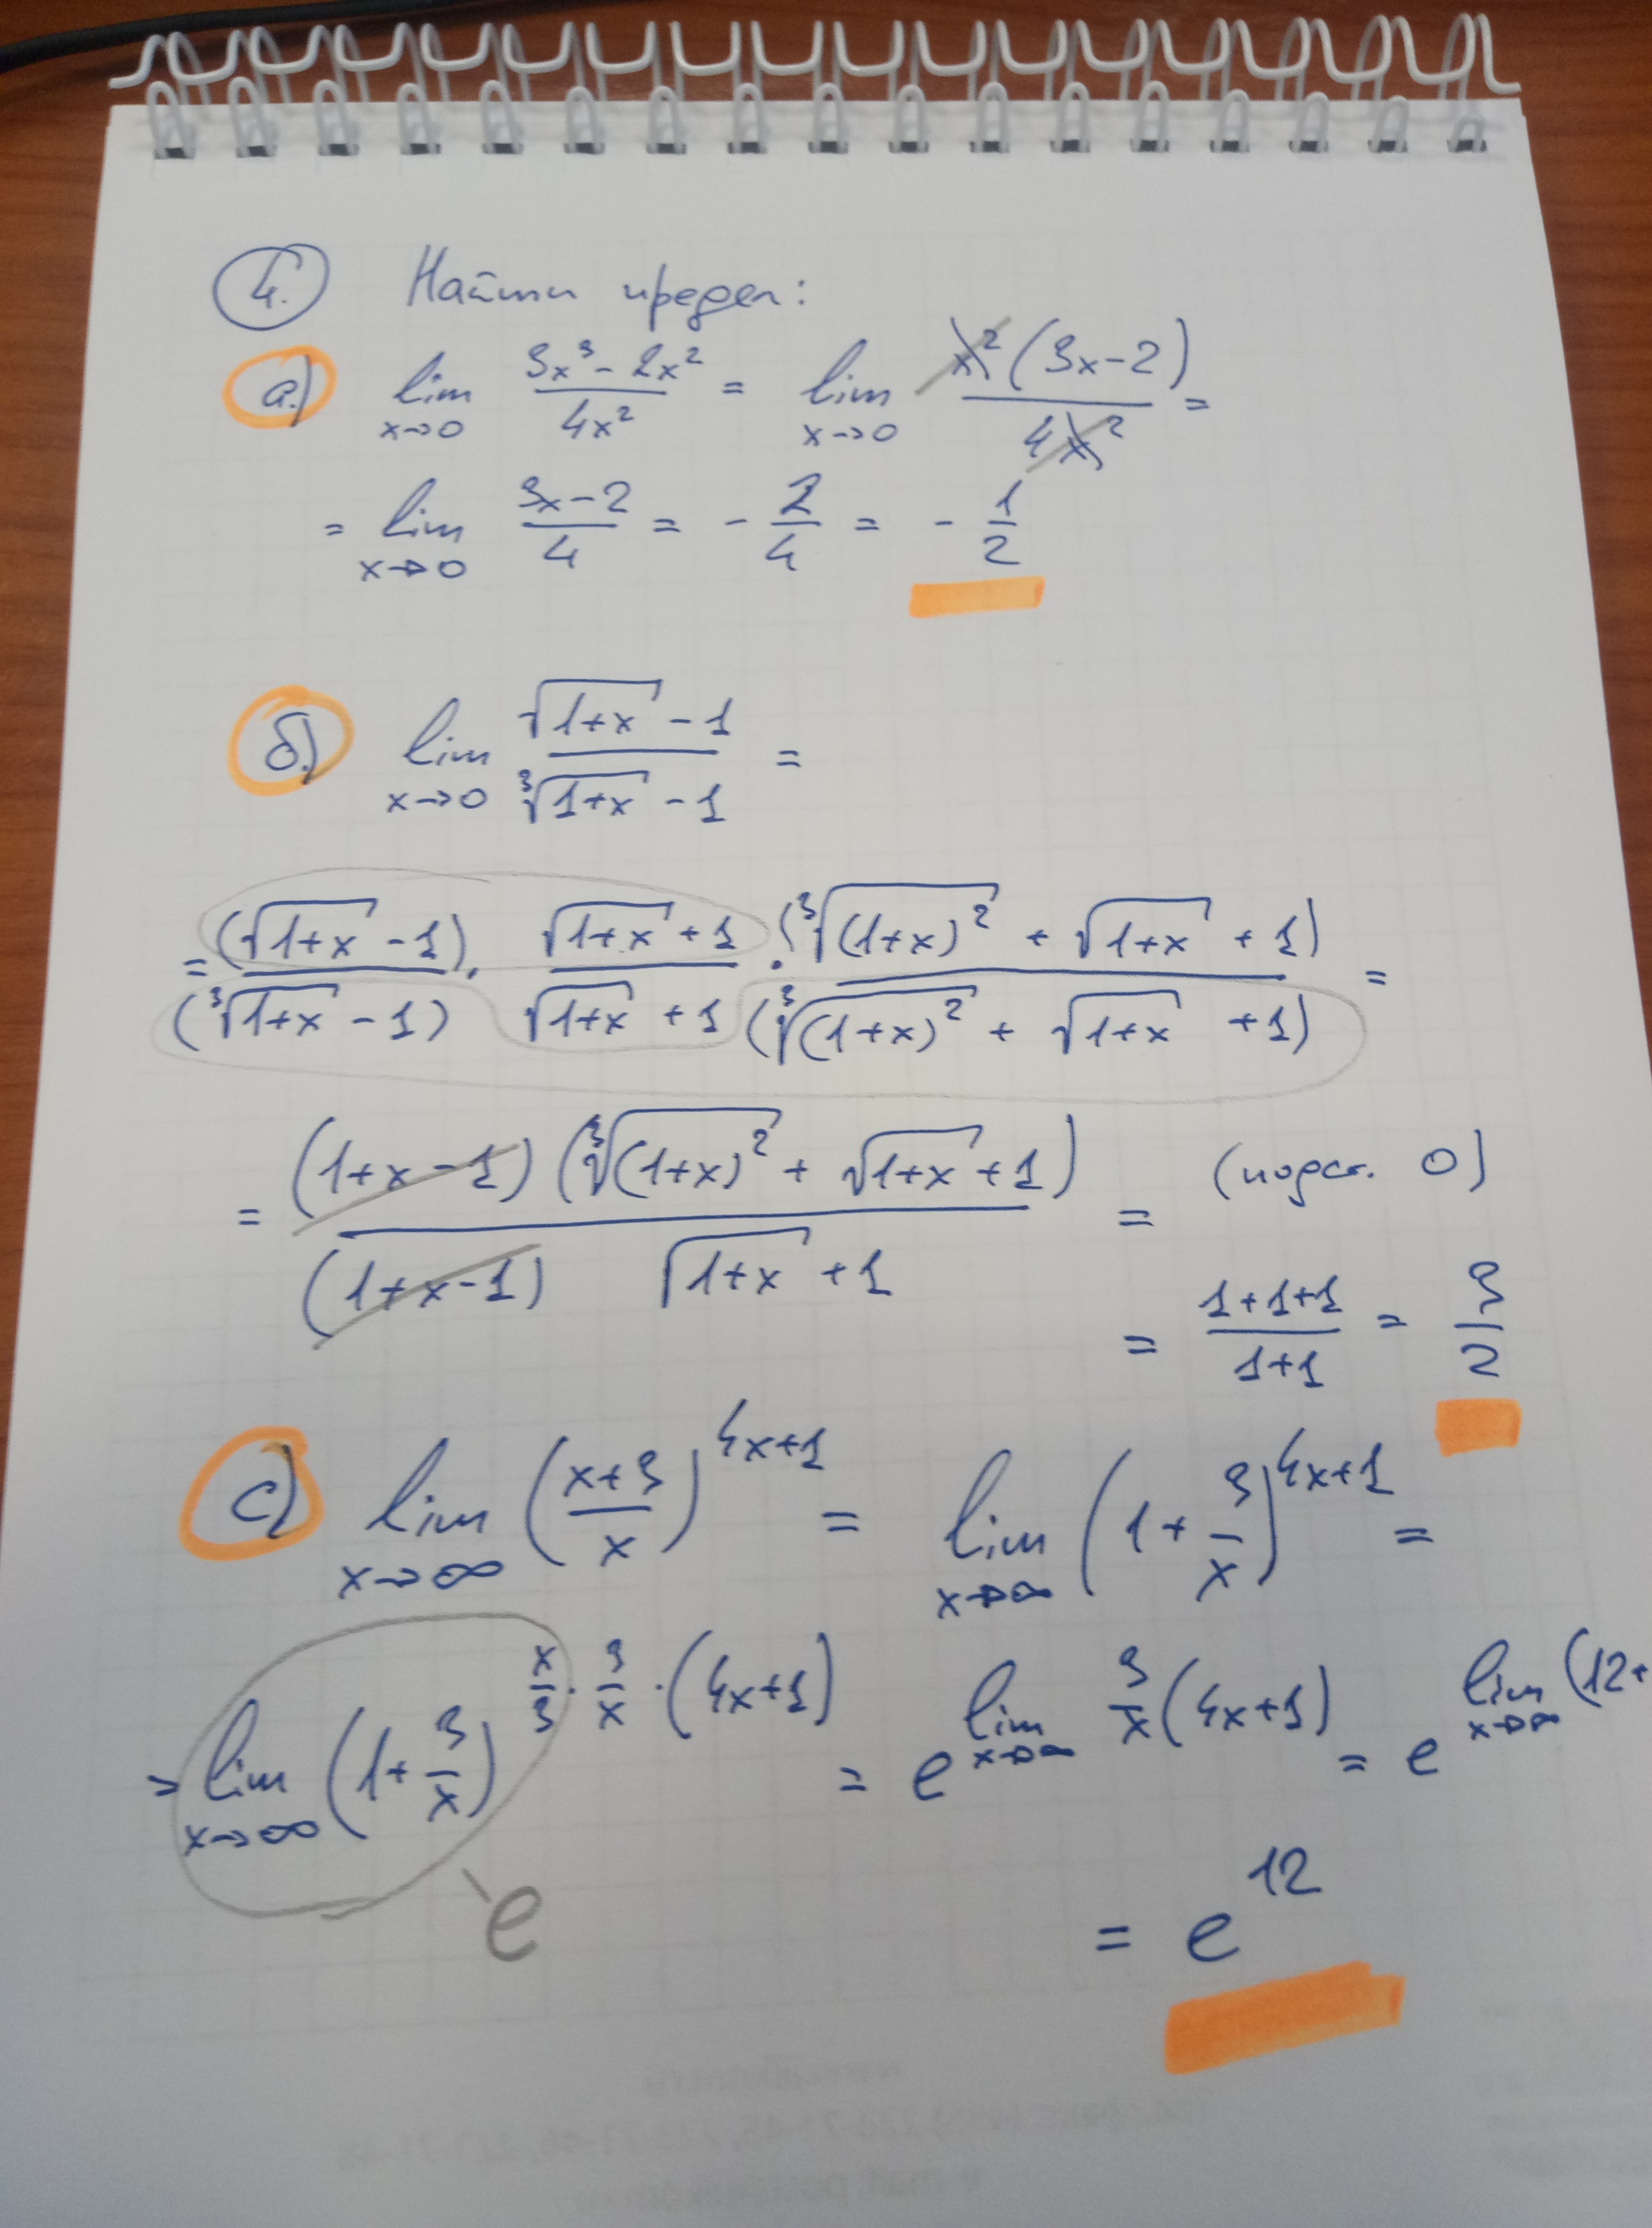 4. Найти предел:
а.) lim x→0 (3x³ - 2x²)/(4x²) = lim x→0 x²(3x-2)/(4x²) =
= lim x→0 (3x-2)/4 = - 2/4 = - 1/2
б.) lim x→0 (√(1+x) - 1)/(³√(1+x) - 1) =
= (√(1+x) - 1)/(³√(1+x) - 1) · (√(1+x) + 1)/(√(1+x) + 1) · (³√((1+x)²) + √(1+x) + 1)/(³√((1+x)²) + √(1+x) + 1) =
= (1+x-1)(³√((1+x)²) + √(1+x) + 1)/((1+x-1) √(1+x) + 1) = (подст. 0)
= (1+1+1)/(1+1) = 3/2
c) lim x→∞ ((x+3)/x)^(4x+1) = lim x→∞ (1 + 3/x)^(4x+1) =
= lim x→∞ (1 + 3/x)^(x/3 · 3/x · (4x+1)) = e^(lim x→∞ 3/x (4x+1)) = e^(lim x→∞ (12+
e
= e^12